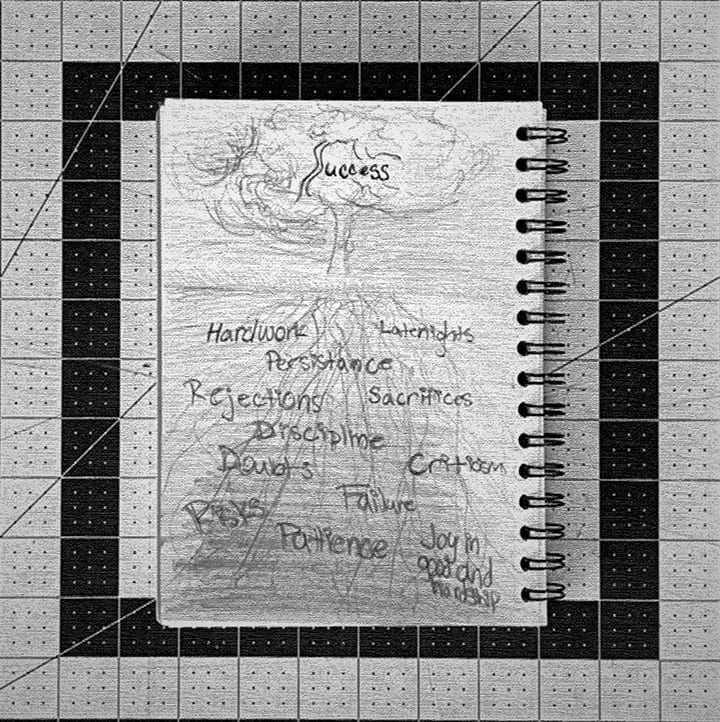 Success
Hardwork Latenights
Persistance
Rejections Sacrifices
Discipline
Doubts Criticism
Failure
Risks
Patience Joy in
good and
hardship